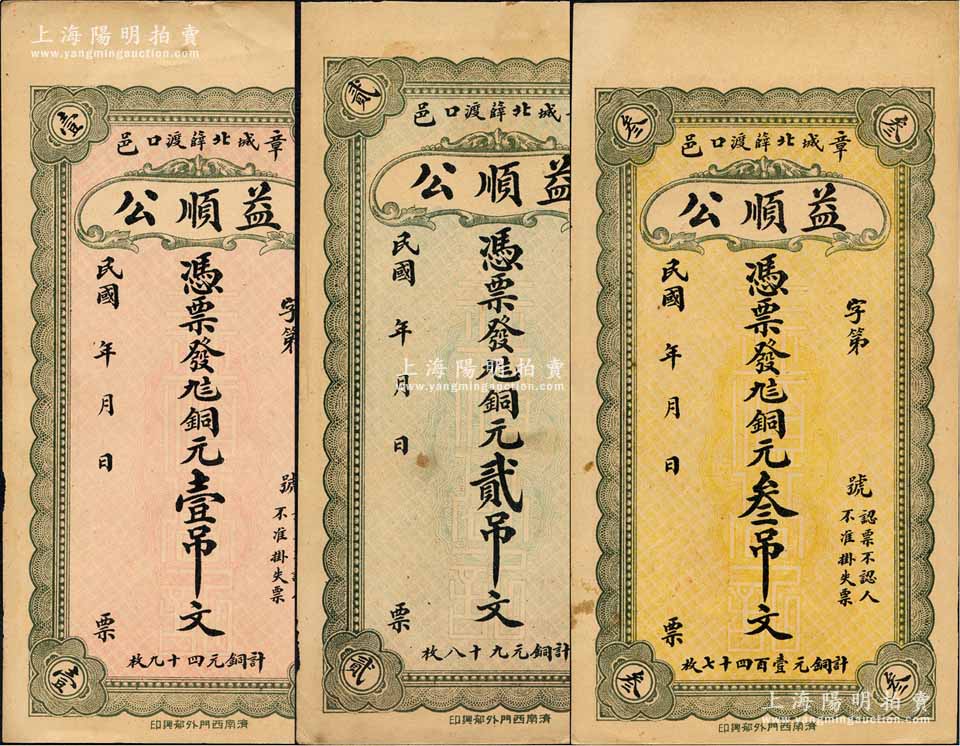 上海陽明拍賣
www.yangmingauction.com
壹
章城北薛渡口邑
益順公
字第
號
不准掛失票
憑票發兌銅元壹吊文
民國 年 月 日
票
計銅元四十九枚
壹
濟南西門外郁興印
貳
城北薛渡口邑
益順公
憑票發兌銅元貳吊文
民國 年 月 日
票
計銅元九十八枚
貳
濟南西門外郁興印
上海陽明拍賣
www.yangmingauction.com
叁
叁
章城北薛渡口邑
益順公
字第
號
認票不認人
不准掛失票
憑票發兌銅元叁吊文
民國 年 月 日
票
計銅元壹百四十七枚
叁
叁
濟南西門外郁興印
上海陽明拍賣
www.yangmingauction.com